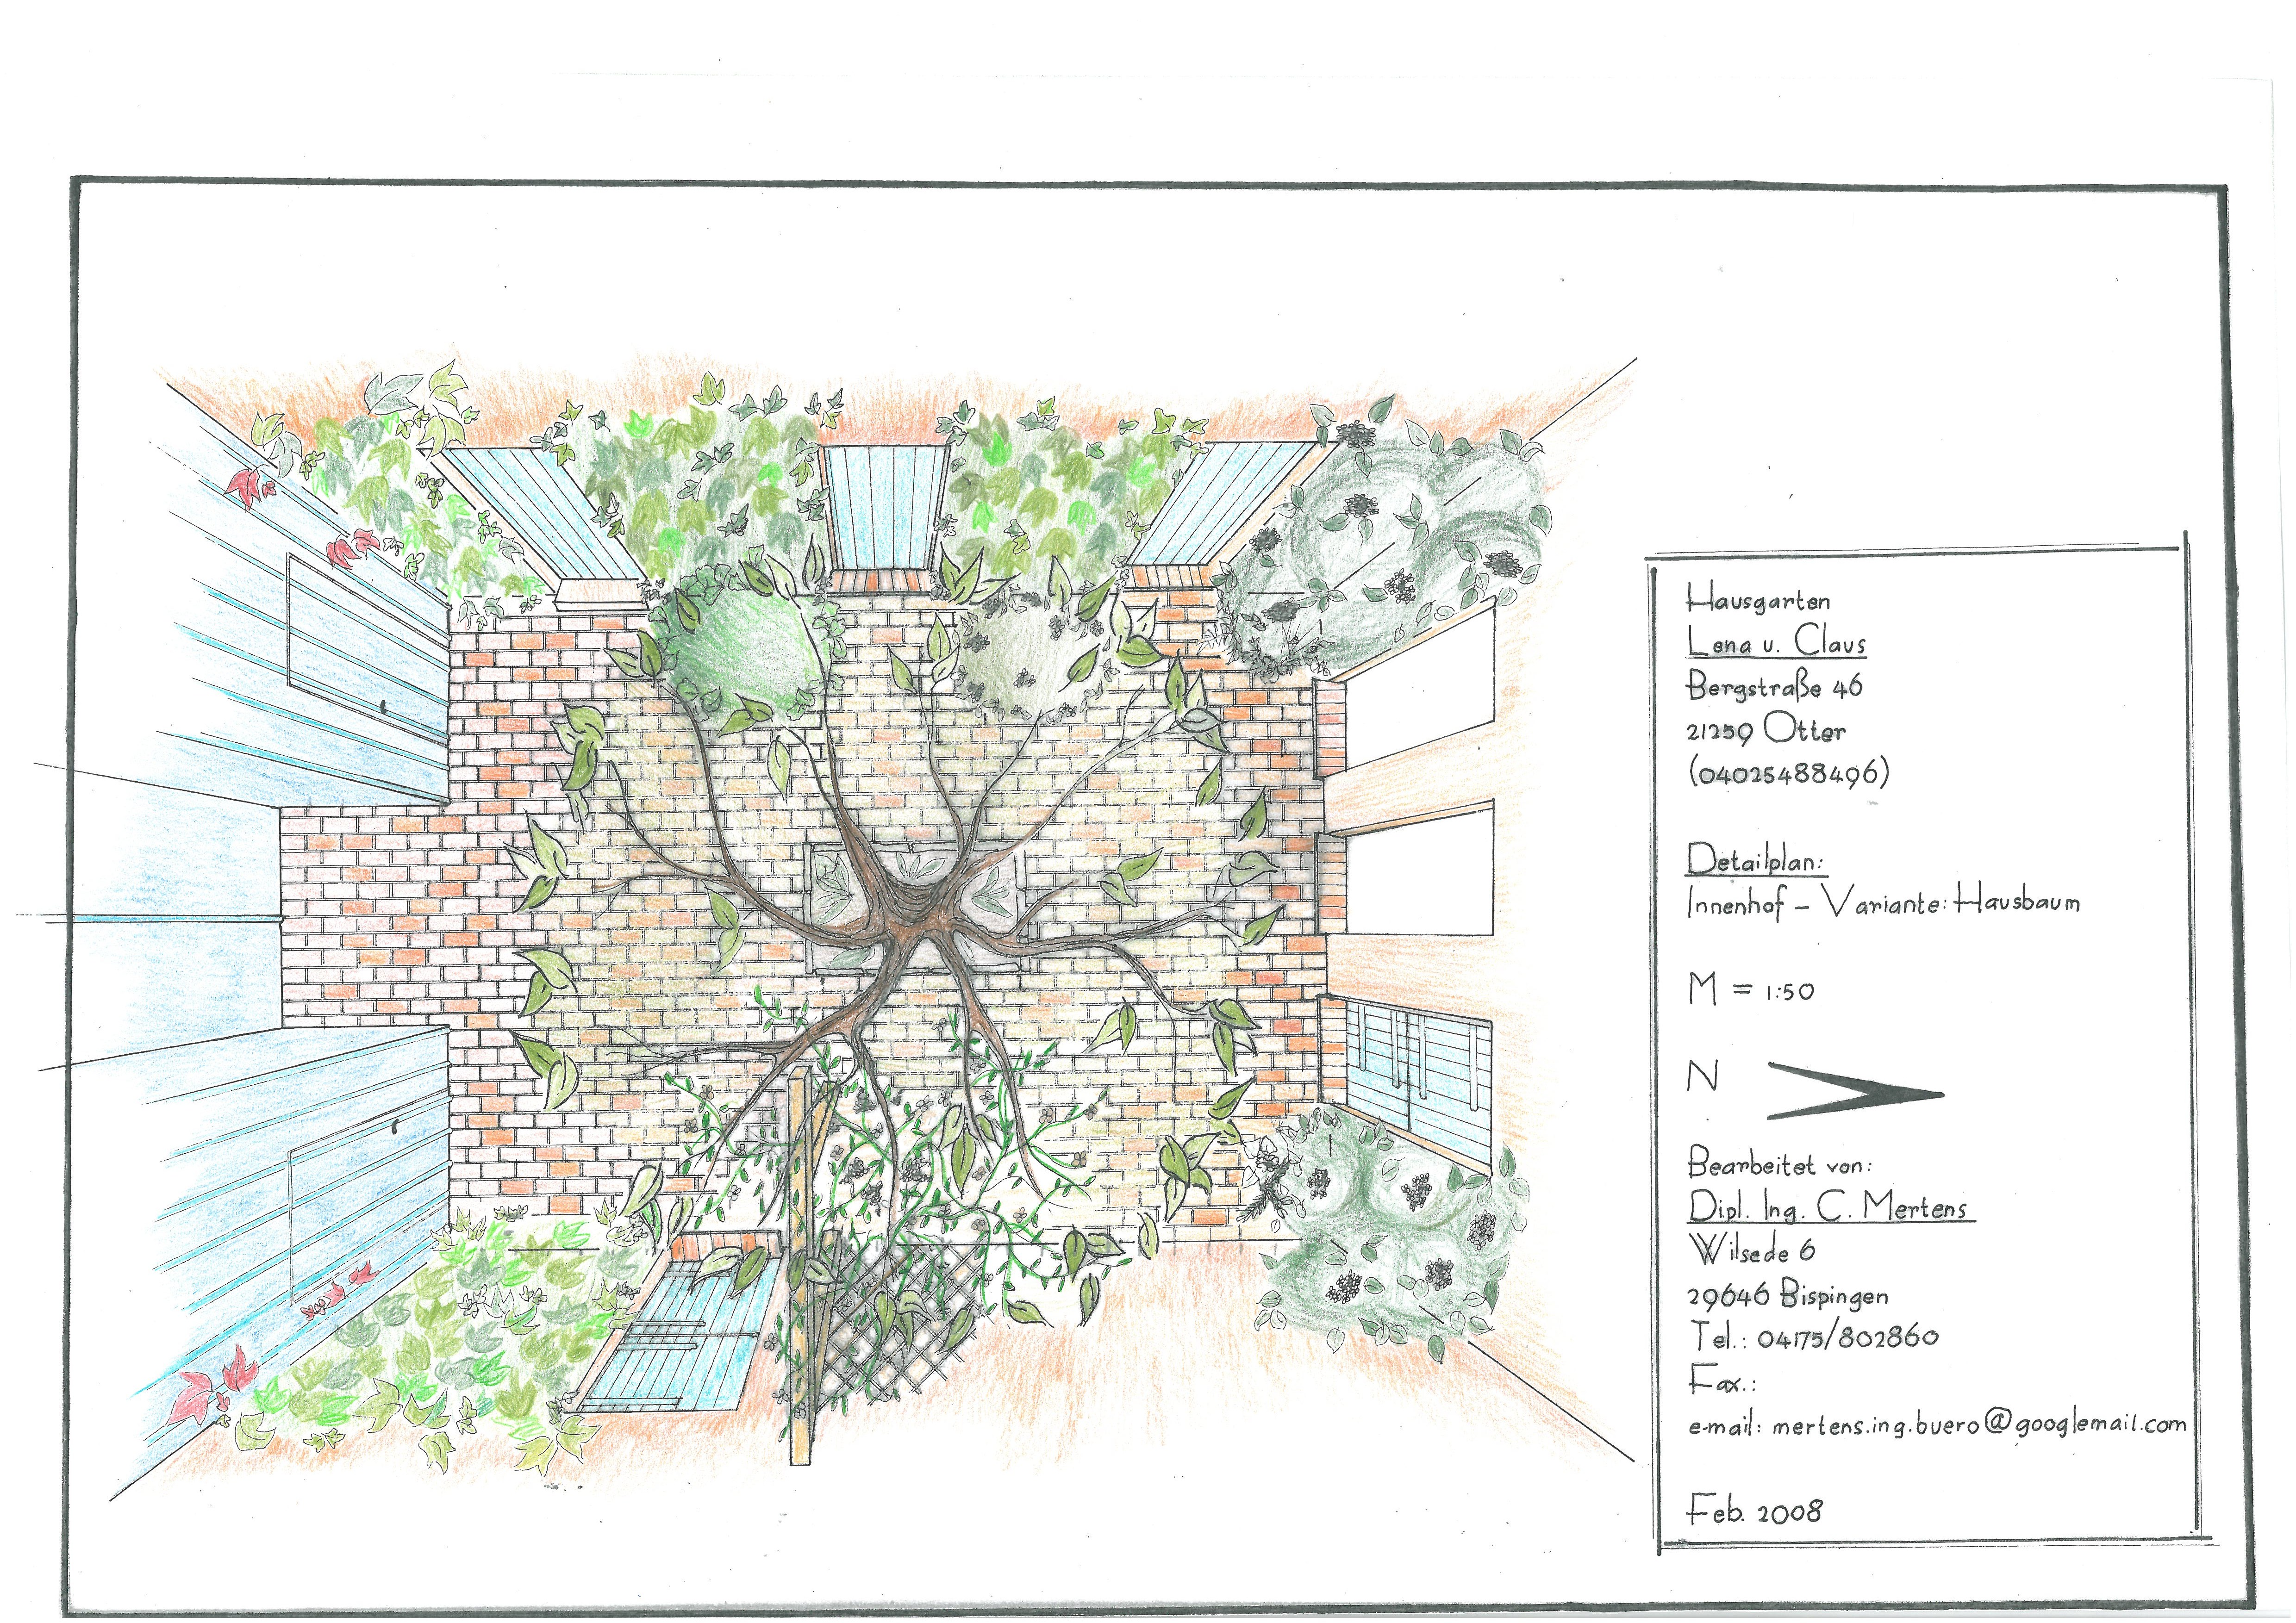 Hausgarten
Lena u. Claus
Bergstraße 46
21259 Otter
(04025488496)
Detailplan:
Innenhof - Variante: Hausbaum
M = 1:50
N
Bearbeitet von:
Dipl. Ing. C. Mertens
Wilsede 6
29646 Bispingen
Tel.: 04175/802860
Fax.:
e-mail: mertens.ing.buero@googlemail.com
Feb. 2008